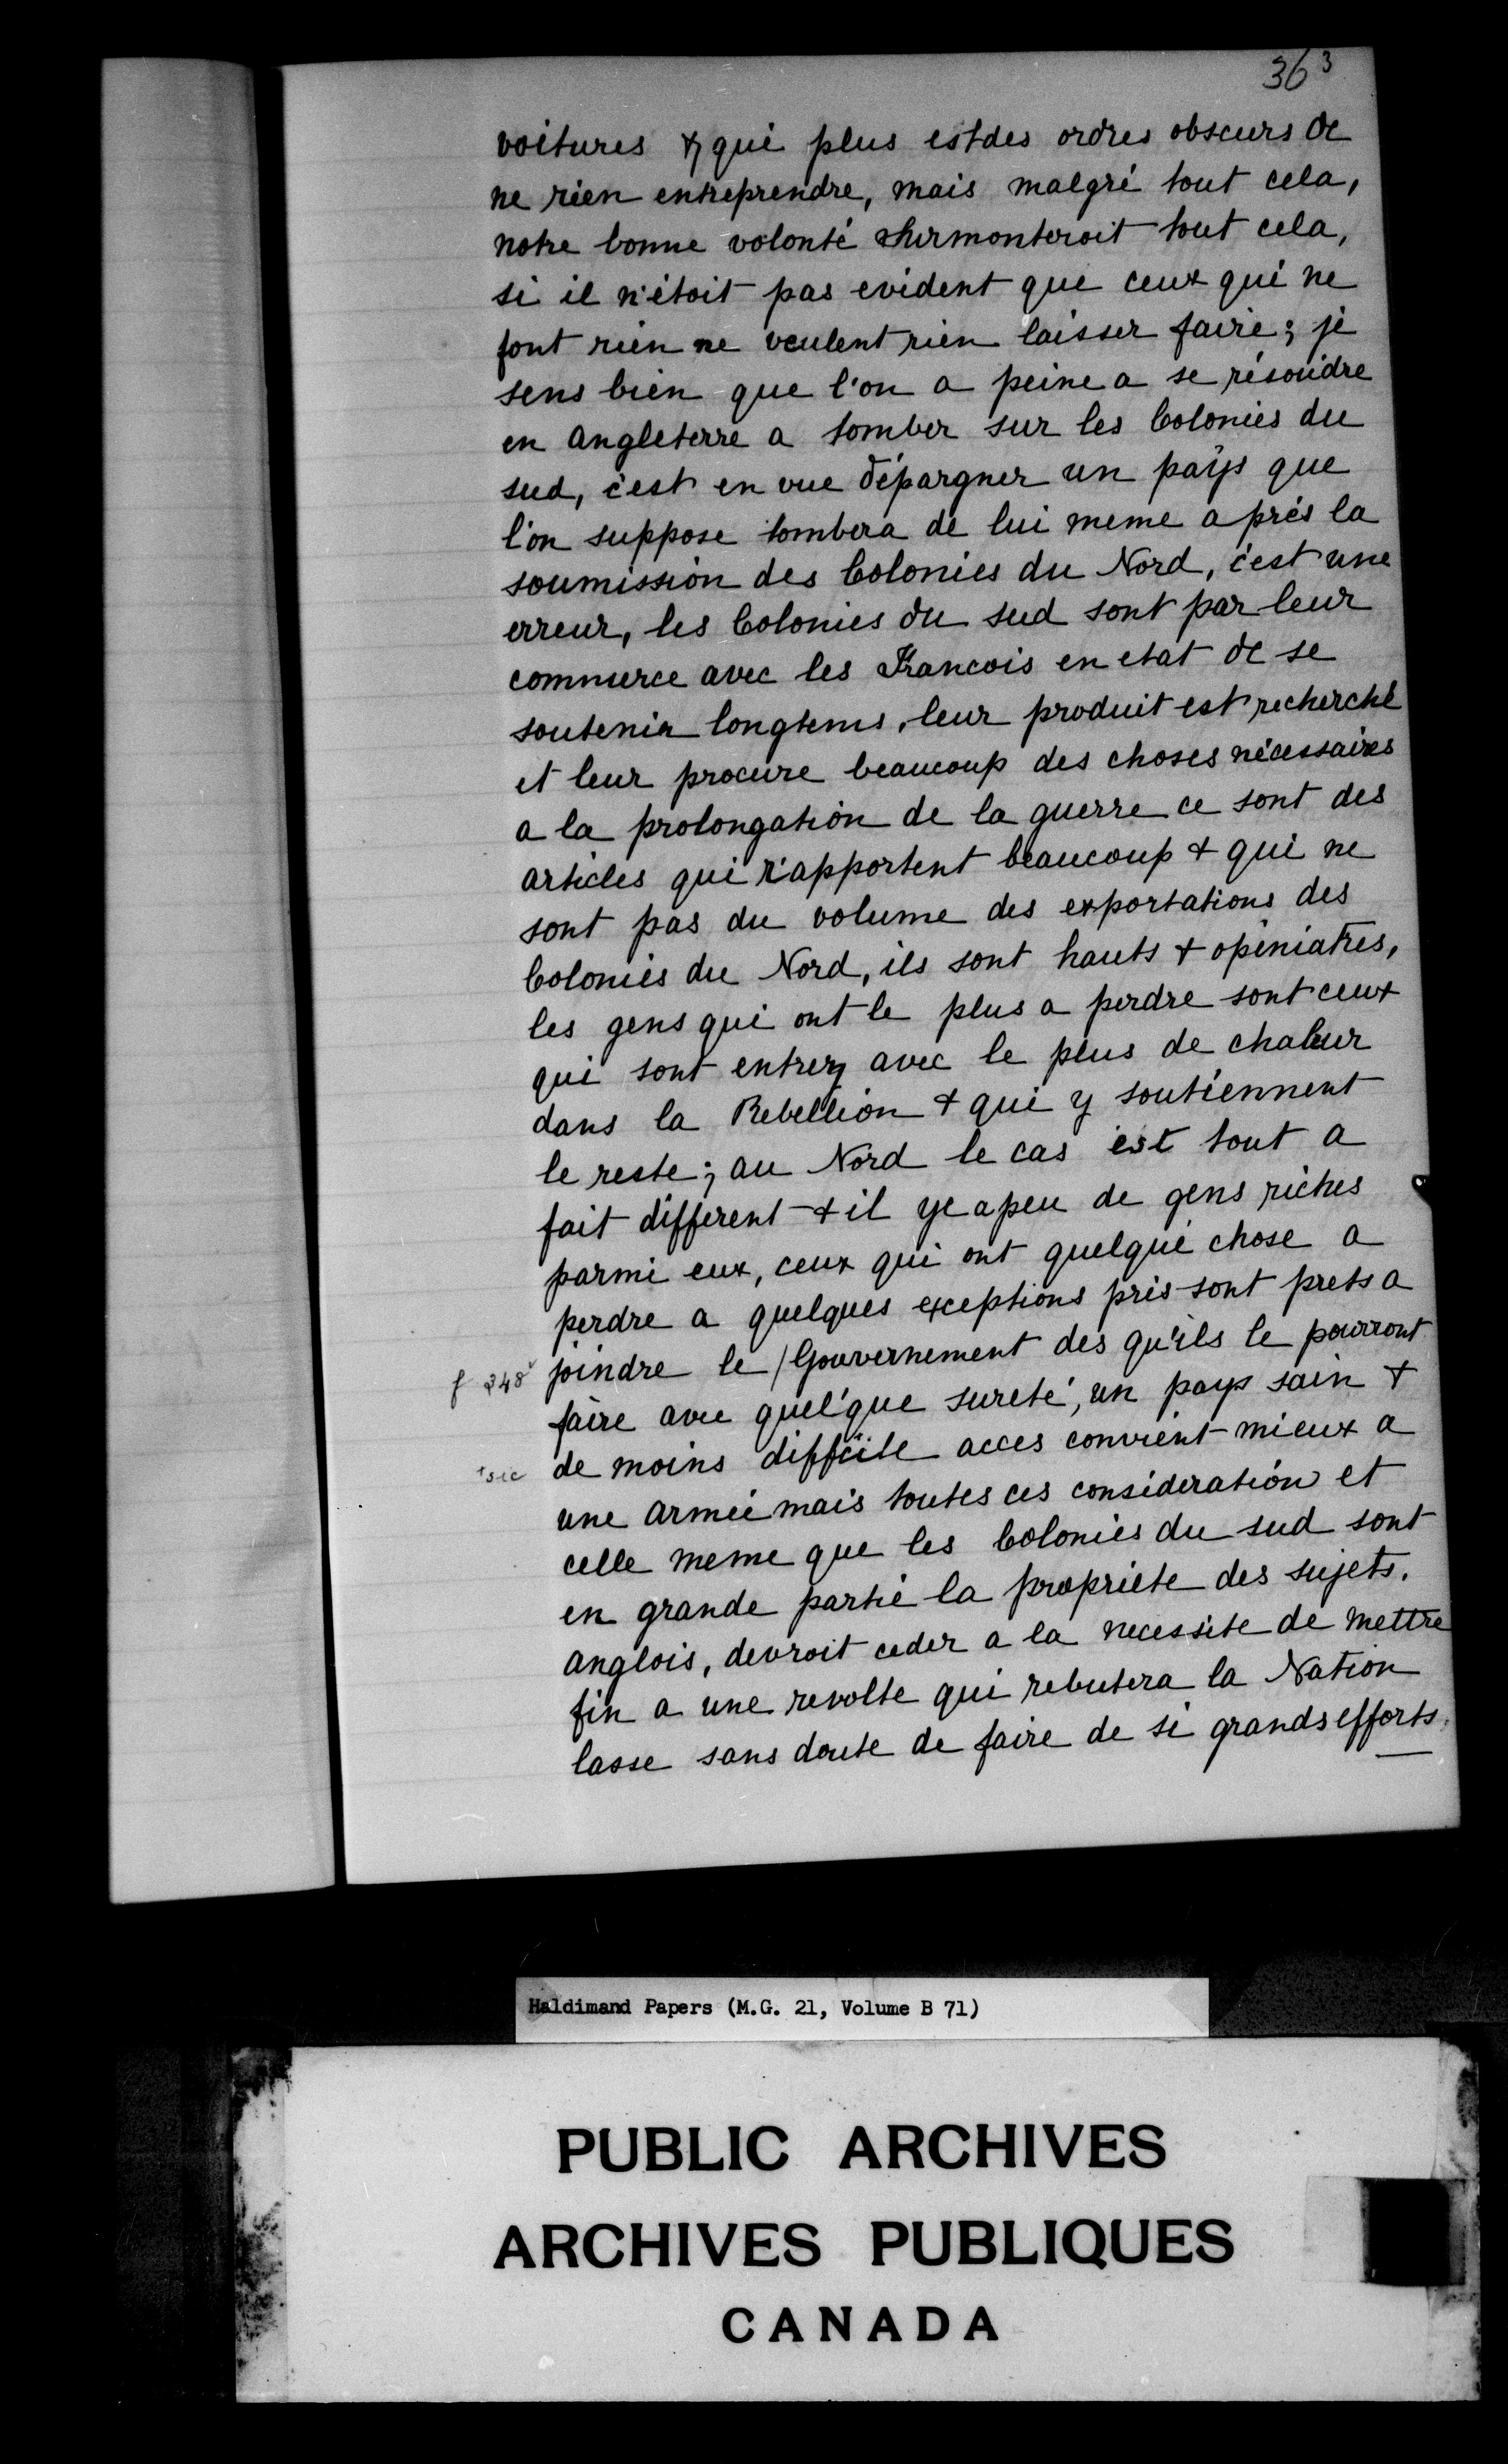 363
voitures & qui plus est des ordres obscurs de
ne rien entreprendre, mais malgré tout cela,
notre bonne volonté surmonteroit tout cela,
si il n'étoit pas evident que ceux qui ne
font rien ne veulent rien laisser faire; je
sens bien que l'on a peine a se résoudre
en angleterre a tomber sur les Colonies du
sud, c'est en vue d'épargner un pays que
l'on suppose tombera de lui meme a prés la
soumission des Colonies du Nord, c'est une
erreur, les Colonies du sud sont par leur
commerce avec les Francois en etat de se
soutenir longtems, leur produit est recherché
et leur procure beaucoup des choses nécessaires
a la prolongation de la guerre ce sont des
articles qui r'apportent beaucoup & qui ne
sont pas du volume des exportations des
Colonies du Nord, ils sont hauts & opiniatres,
les gens qui ont le plus a perdre sont ceux
qui sont entrez avec le plus de chaleur
dans la Rebellion & qui y soutiennent
le reste; au Nord le cas est tout a
fait different & il ye a peu de gens riches
parmi eux, ceux qui ont quelque chose a
perdre a quelques exceptions prés sont prets a
f 348v joindre le / Gouvernement des qu'ils le pourront
faire avec quel'que sureté, un pays sain &
+sic de moins difficile acces convient mieux a
une armée mais toutes ces consideration et
celle meme que les Colonies du sud sont
en grande partie la propriete des sujets.
anglois, devroit ceder a la necessite de mettre
fin a une revolte qui rebutera la Nation
lasse sans doute de faire de si grands efforts.
Haldimand Papers (M.G. 21, Volume B 71)
PUBLIC ARCHIVES
ARCHIVES PUBLIQUES
CANADA